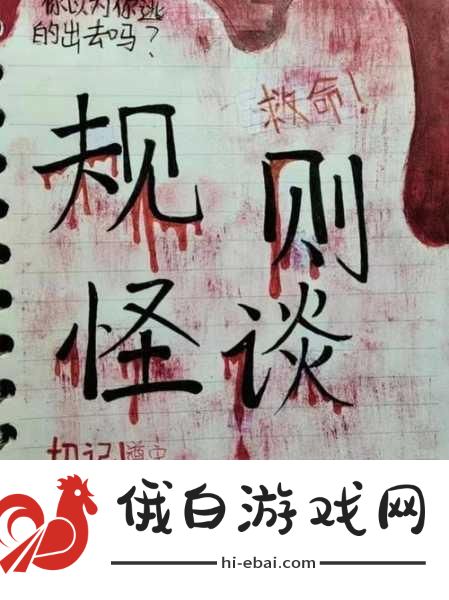 你以为你逃
的出去吗？
救命！
规则
怪谈
切记！遵守
俄白游戏网
hi-ebai.com